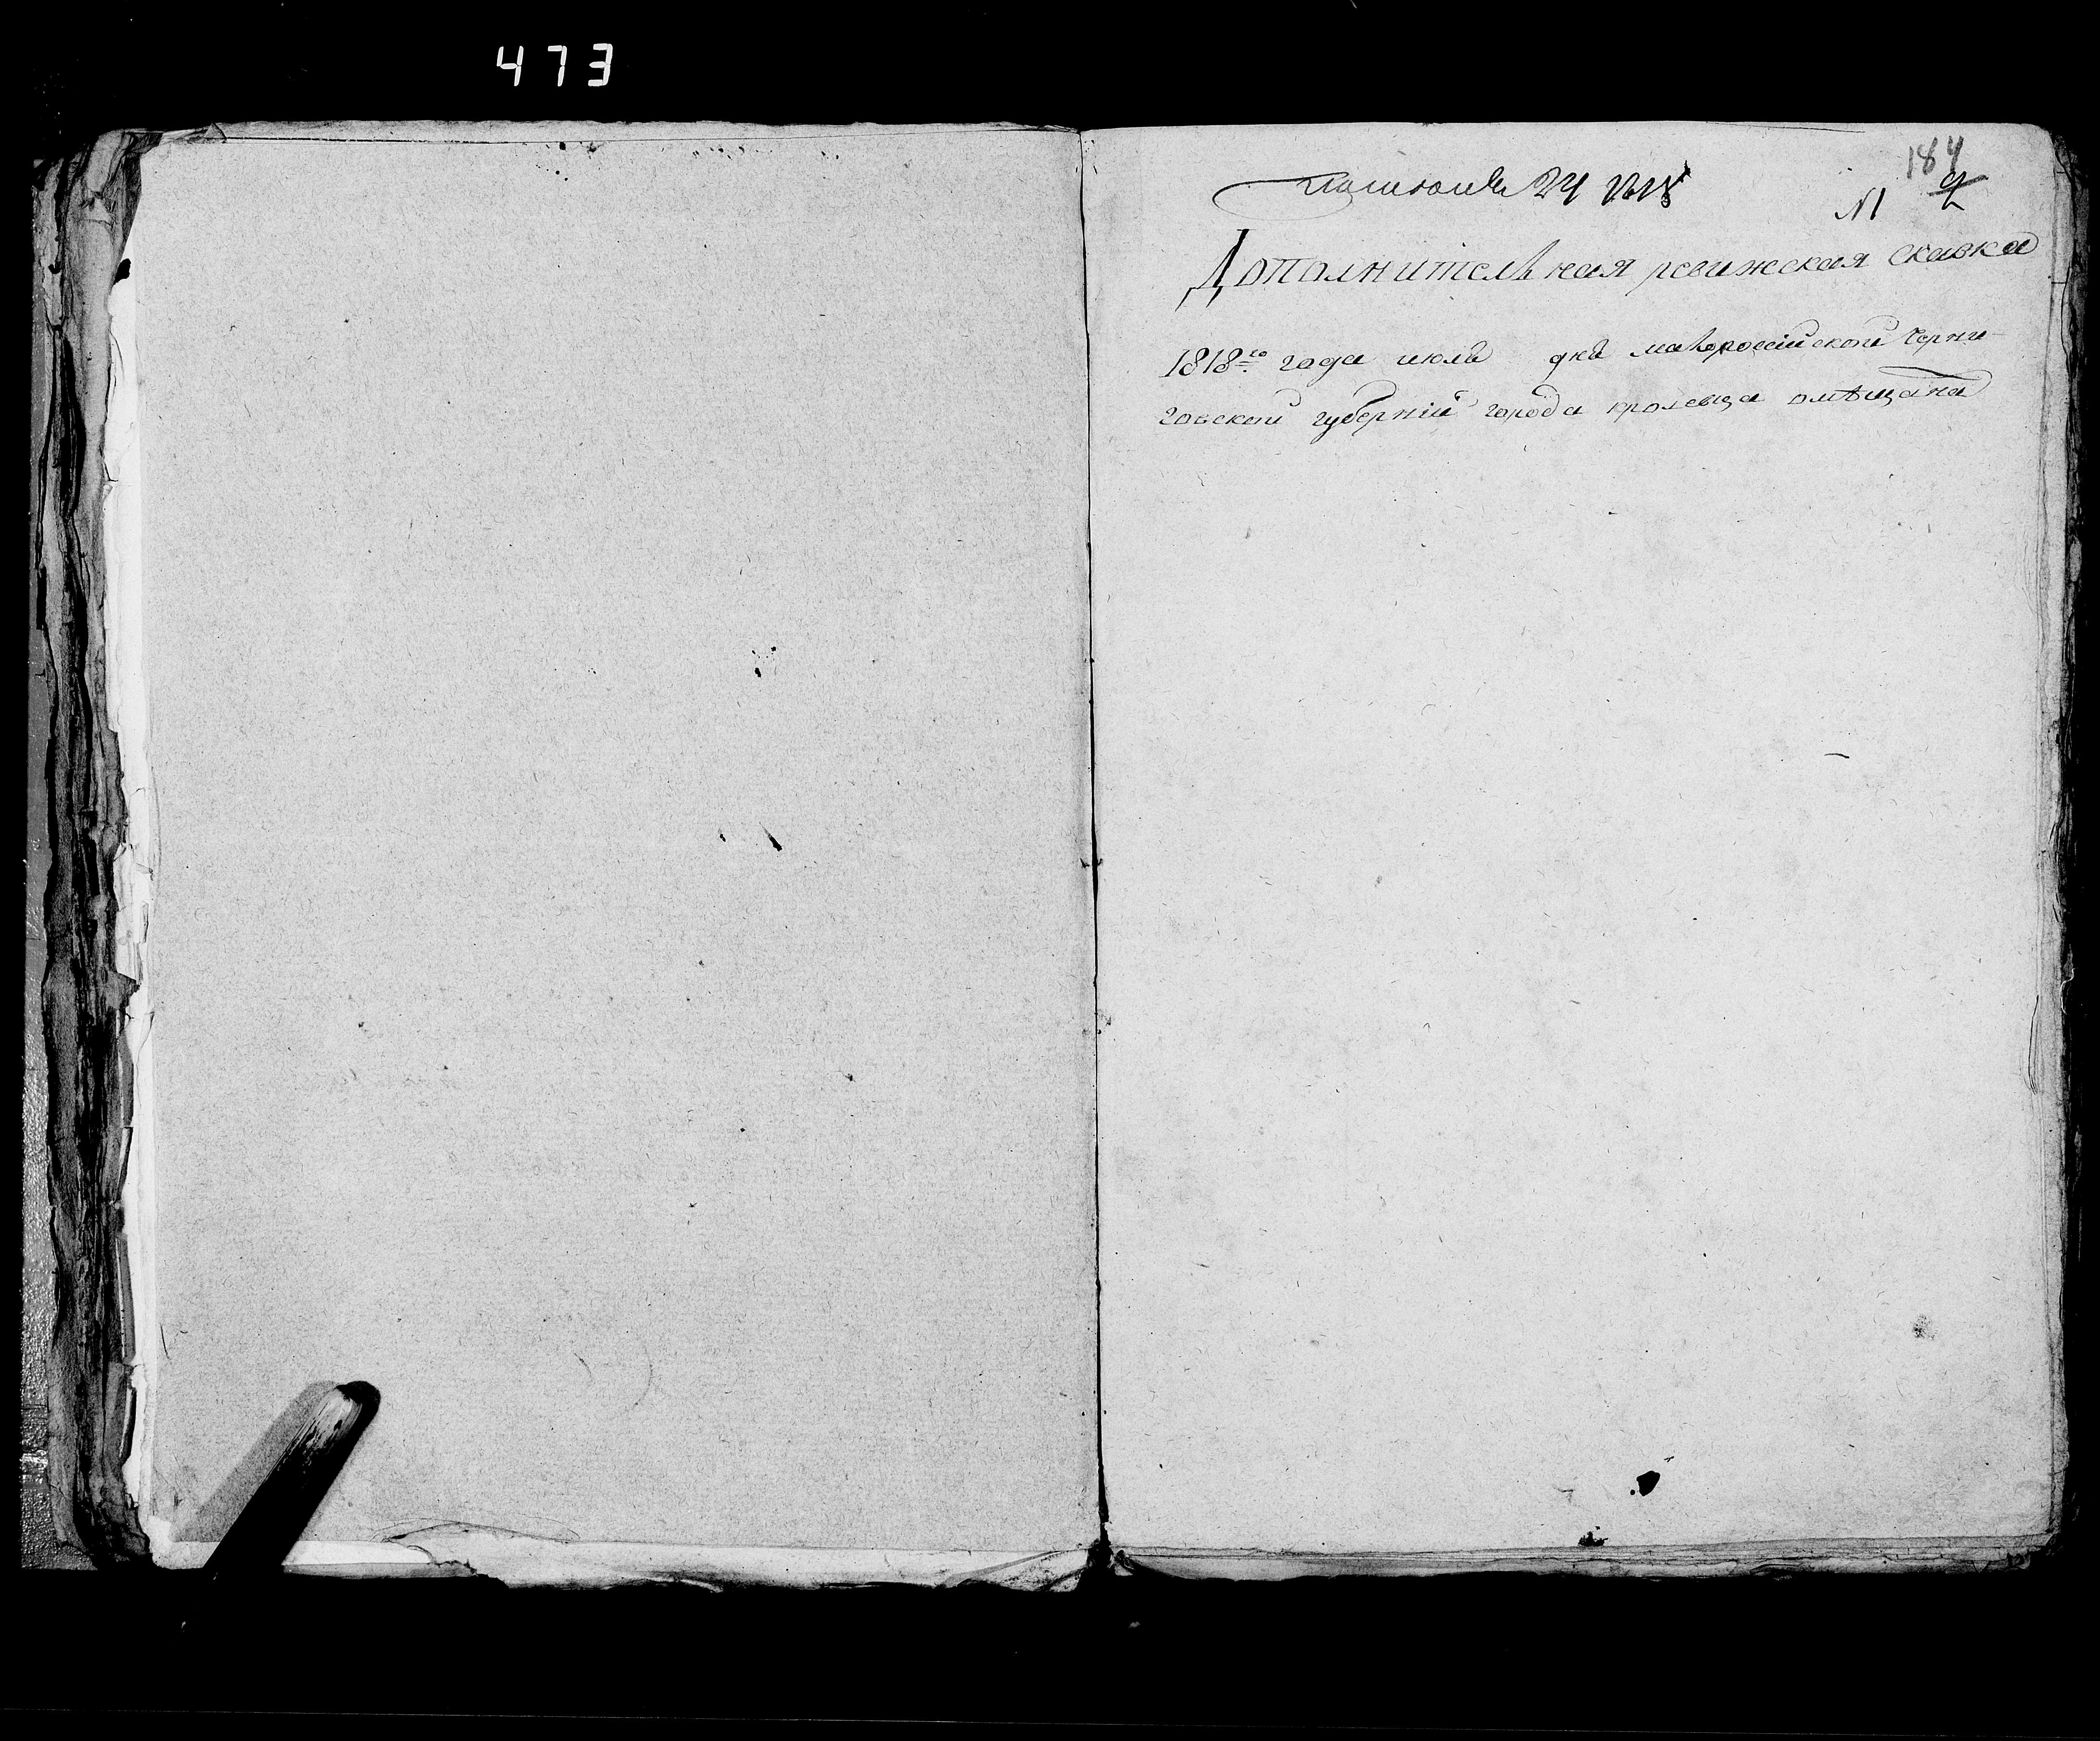 473
184
24 1818
№ 1
Дополнительная ревижская скавка
1818го года июля дня малороссійской Черни-
говской губерніи города кролевца омѣщана